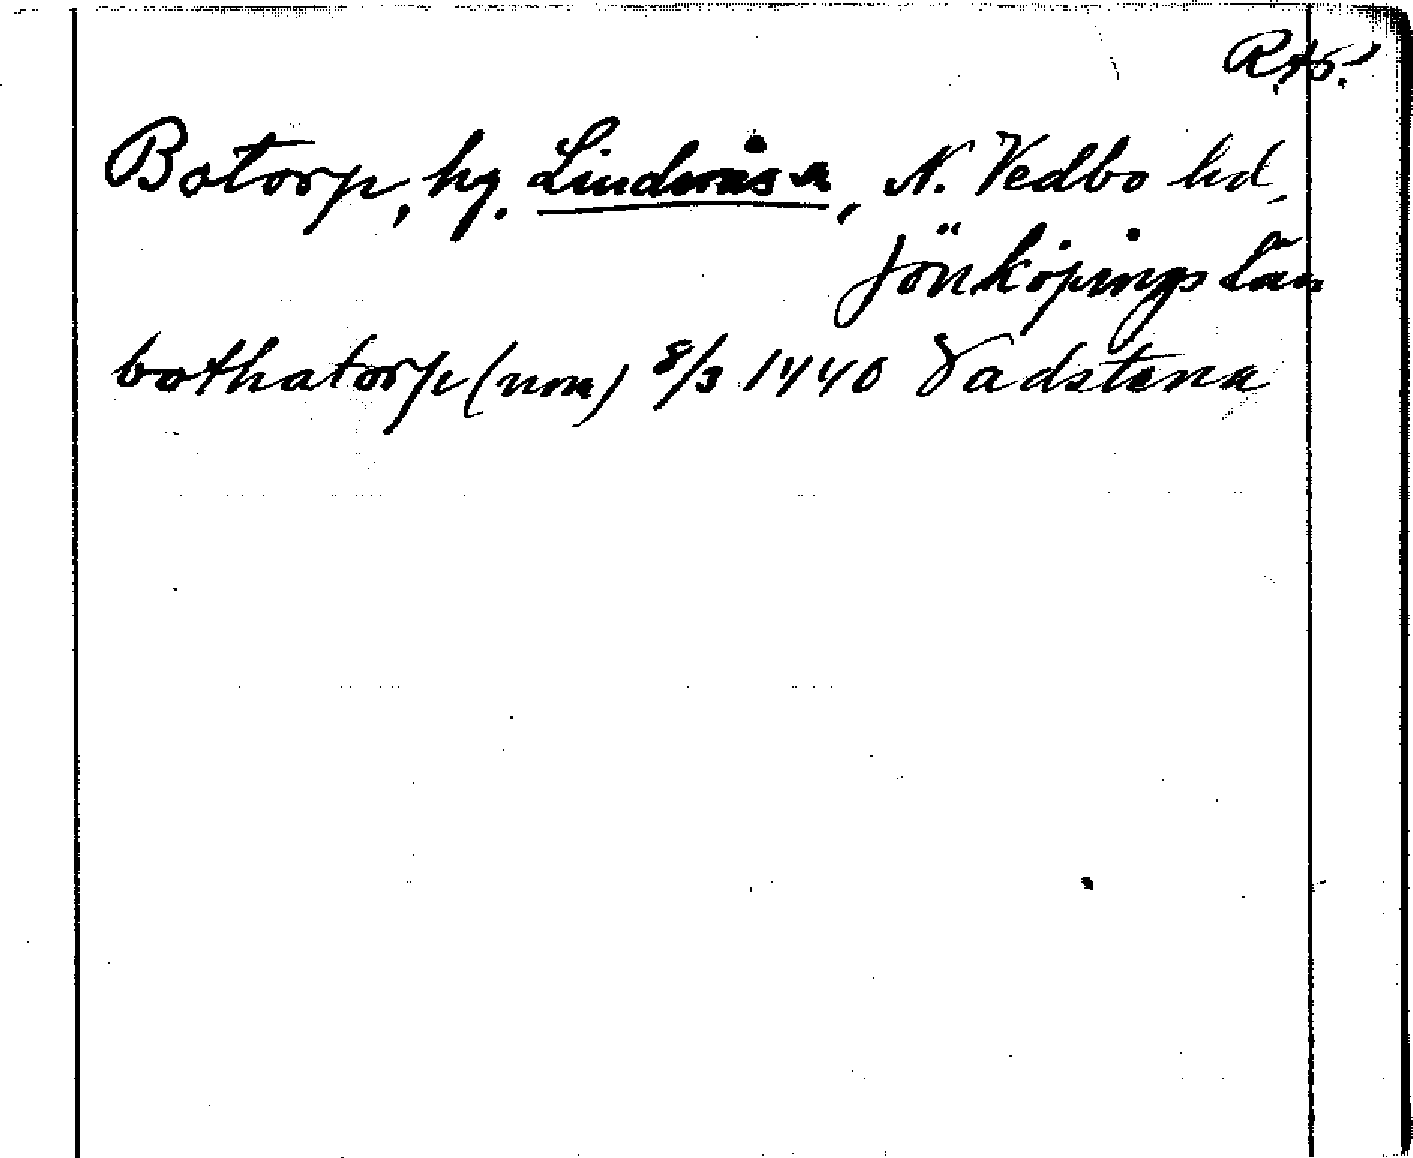 R.Ap.
Botorp, hg. Linderås sn, N. Vedbo hd,
Jönköpings län
bothatorp (nom) 8/3 1440 Vadstena